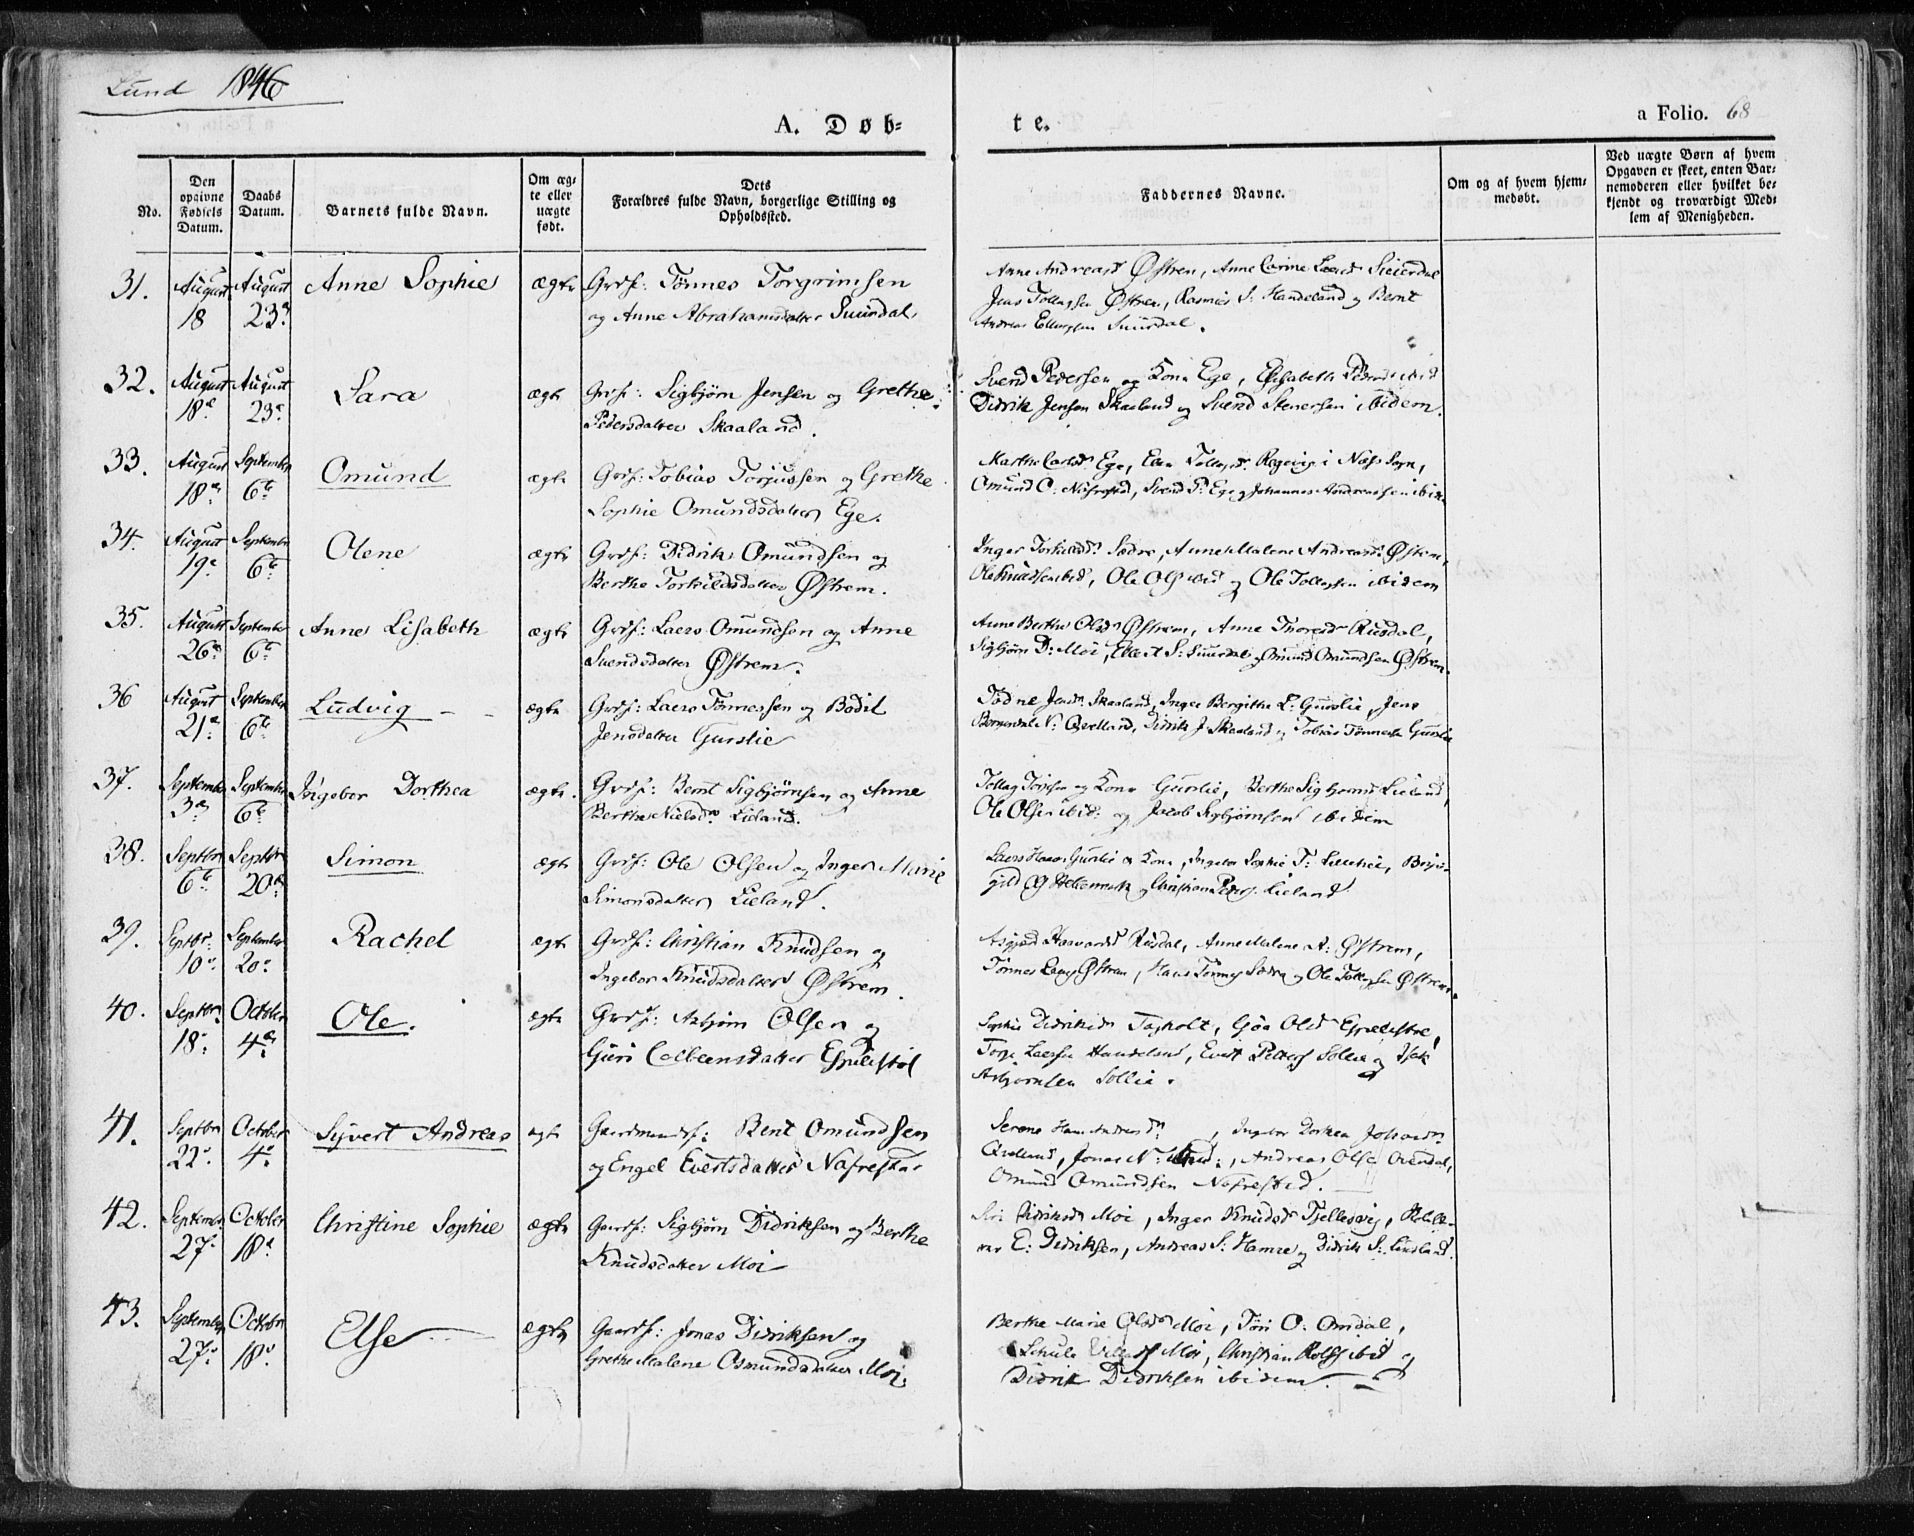 Lund 1846
A. Døb-
te.
a Folio. 68
No.
Den opgivne Fødsels Datum.
Daabs Datum.
Barnets fulde Navn.
Om ægte eller uægte født.
Dets Forældres fulde Navn, borgerlige Stilling og Opholdssted.
Faddernes Navne.
Om og af hvem hjemmedøbt.
Ved uægte Børn af hvem Opgaven er skeet, enten Barnemoderen eller hvilket bekjendt og troværdigt Medlem af Menigheden.
31. August 18 August 23d Anne Sophie ægte Grdf: Tønnes Torgrimsen
og Anne Abrahamsdatter Suurdal
Anne Andreasd Østren, Anne Carine
Jens Tollagsen Østren, Rasmus S: Handeland og Bernt
Andreas Suurdal.
32. August 18de August 23de Sara ægte Grdf: Sigbjørn Jensen og Grethe
Pedersdatter Skaaland.
Svend Pedersen og Kone Ege, Elisabeth
Didrik Jensen Skaaland og Svend Stenersen ibidem.
33. August 18de September 6te Omund ægte Grdf: Tobias Torjussen og Grethe
Sophie Omundsdatter Ege.
Marthe Ege,
Omund O: Nafrestad, Svend P: Ege og Johannes Andreassen ibidem
34. August 19de September 6te Olene ægte Grdf: Didrik Omundsen og
Berthe Torkildsdatter Østrem.
Inger Anne Malene Andreasd: Østrem,
Ole Knudsen ibid, Ole Ols ibid og Ole Tollagsen ibidem
35. August 26de September 6te Anne Lisabeth ægte Grdf: Laers Omundsen og Anne
Svendsdatter Østrem.
Anne Berthe Olsdr Østrem, Anne Thoresdr Rusdal,
Sigbjørn D: Moi, S: Suurdal og Omund Omundsen Østrem.
36 August 21de September 6te Ludvig ægte Grdf: Laers Tønnessen og Bodil
Jensdatter Gurslie
Jensdr Skaaland, Inger Bergithe L: Gurslie, Jens
N: Qvelland, Didrik J Skaaland og Tobias Tønnesen Gurslie
37. September 3de September 6te Ingebor Dorthea ægte. Grdf: Bernt Sigbjørnsen og Anne
Berthe Nielsdr Lieland.
Tollag og Kone Gurslie, Berthe Sigbjørnsd Lieland,
Ole Olsen ibid: og Jacob Sigbjørnsen ibidem
38. Septbr 6te Septbr 20de Simon ægte Grdf: Ole Olsen og Inger Marie
Simonsdatter Lieland.
Laers Gurslie og Kone, Ingebor Sophie T:
og Christian Peders. Lieland
39. Septbr. 10de September 20de Rachel ægte Grdf: Christian Knudsen og
Ingebor Knudsdatter Østrem.
Rusdal, Anne Malene A: Østrem,
Tønnes Østrem, Hans og Ole Tollagsen Østrem.
40. Septbr. 18de October 4de Ole. ægte Grdf: Asbjørn Olsen og
Guri Colbensdatter Espelistøl
Sophie
Laersen Handeland, Evert Sollie og Isak
Asbjørnsen Sollie.
41. Septbr 22de October 4de Syvert Andreas ægte Gaardmandsf: Bent Omundsen
og Engel Evertsdatter Nafrestad
Serene , Ingebor Dorthea
Qvelland, Jonas N: ibid:, Andreas Olsen
Omund Omundsen Nafrestad.
42. September 27de October 18de Christine Sophie ægte Gaardf: Sigbjørn Didriksen og Berthe
Knudsdatter Moi
Siri Didriksdr Moi, Inger Knudsd Fjellesvig,
E: Didriksen, Andreas S: Hamre og Didrik S: Lindland.
43. September 27de Octobr 18de Else ægte Gaardf: Jonas Didriksen og
Grethe Malene Osmundsdatter Moi.
Berthe Marie Olsdr Moi, Siri O: Omdal,
Moi, Christian Rolfs ibid og
Didrik Didriksen ibidem.